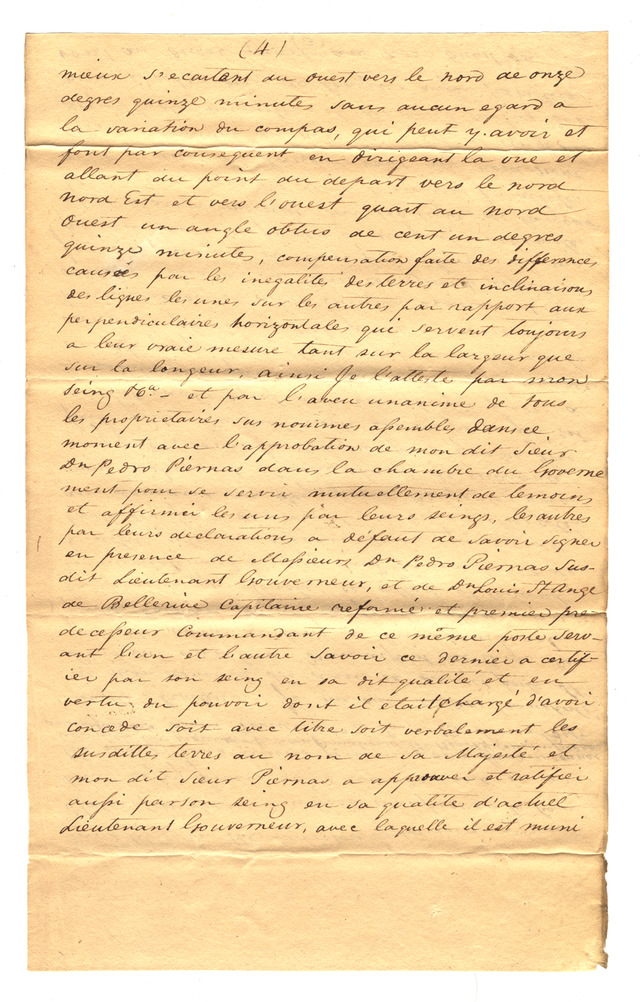 (4)
mieux s'ecartant du ouest vers le nord de onze
degres quinze minutes sans aucun egard a
la variation du compas, qui peut y avoir et
font par consequent en dirigeant la vue et
allant du point du depart vers le nord
nord Est et vers l'ouest quart au nord
ouest un angle obtus de cent un degres
quinze minutes, compensation faite des differences
causées par les inegalités des terres et inclinaisons
des lignes les unes sur les autres par rapport aux
perpendiculaires horizontales qui servent toujours
a leur vraie mesure tant sur la largeur que
sur la longeur, ainsi Je l'atteste par mon
seing &ca - et par l'aveu unanime de tous
les proprietaires sus nommes assembles dans ce
moment avec l'approbation de mon dit Sieur
Dn Pedro Piernas dans la chambre du Governe
ment pour se servir mutuellement de temoins
et affirmer les uns par leurs seings, les autres
par leurs declarations a defaut de savoir signer
en presence de Messieurs Dn Pedro Piernas sus-
dit Lieutenant Gouverneur, et de Dn Louis St Ange
de Bellerive Capitaine reformé et premier pre-
decesseur Commandant de ce même poste serv-
ant l'un et l'autre Savoir ce dernier a certif-
ier par son seing en sa dit qualité et en
vertu du pouvoir dont il etait chargé d'avoir
concede soit avec titre soit verbalement les
susdittes terres au nom de Sa Majesté et
mon dit Sieur Piernas a approuver et ratifier
aussi par son seing en sa qualite d'actuel
Lieutenant Gouverneur, avec laquelle il est muni